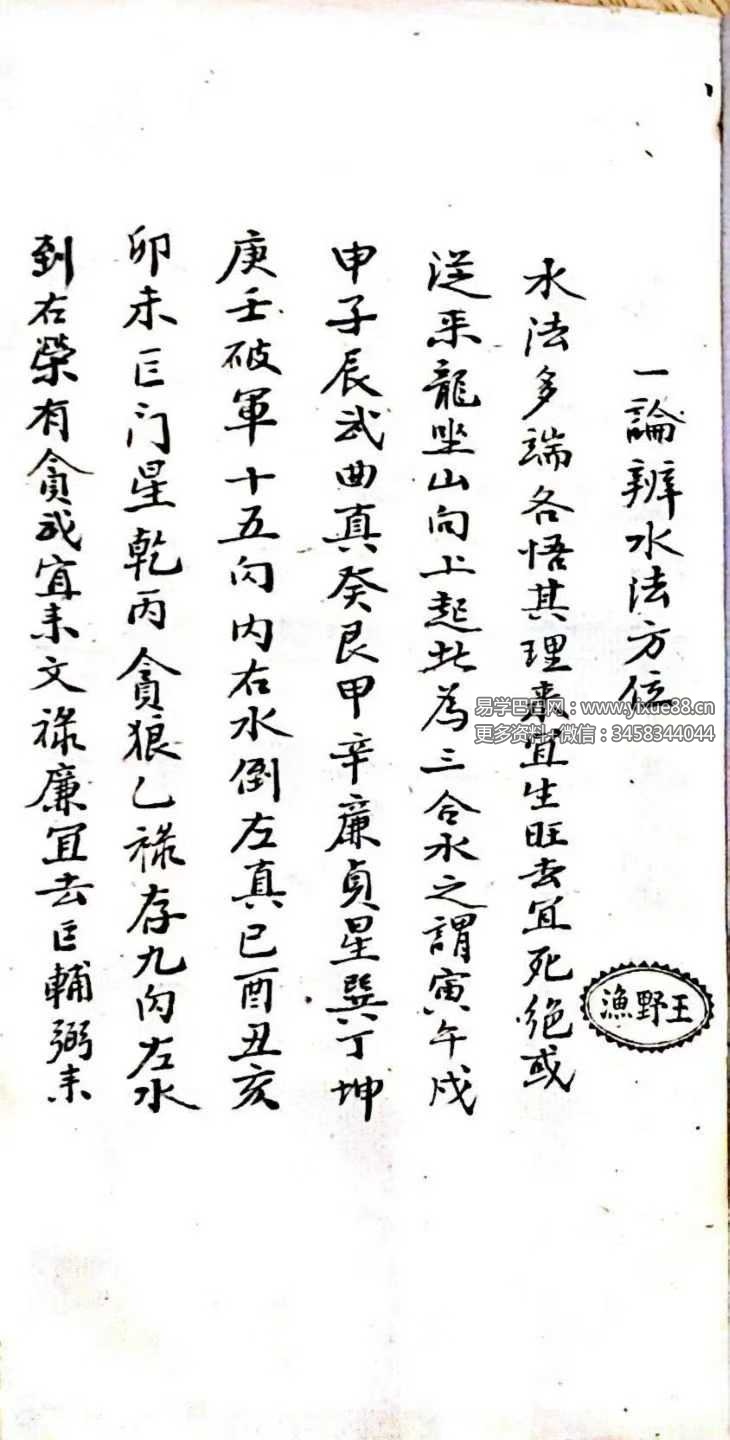 一論辨水法方位
水法多端各悟其理来宜生旺去宜死絶或
從来龍坐山向上起此為三合水之謂寅午戌
申子辰武曲真癸艮甲辛廉貞星巽丁坤
庚壬破軍十五向内右水倒左真巳酉丑亥
卯未巨门星乾丙貪狼乙禄存九向左水
到右榮有貪武宜来文禄廉宜去巨輔弼来
漁野王
易学巴巴网：www.yixue88.cn
更多资料+微信：3458344044